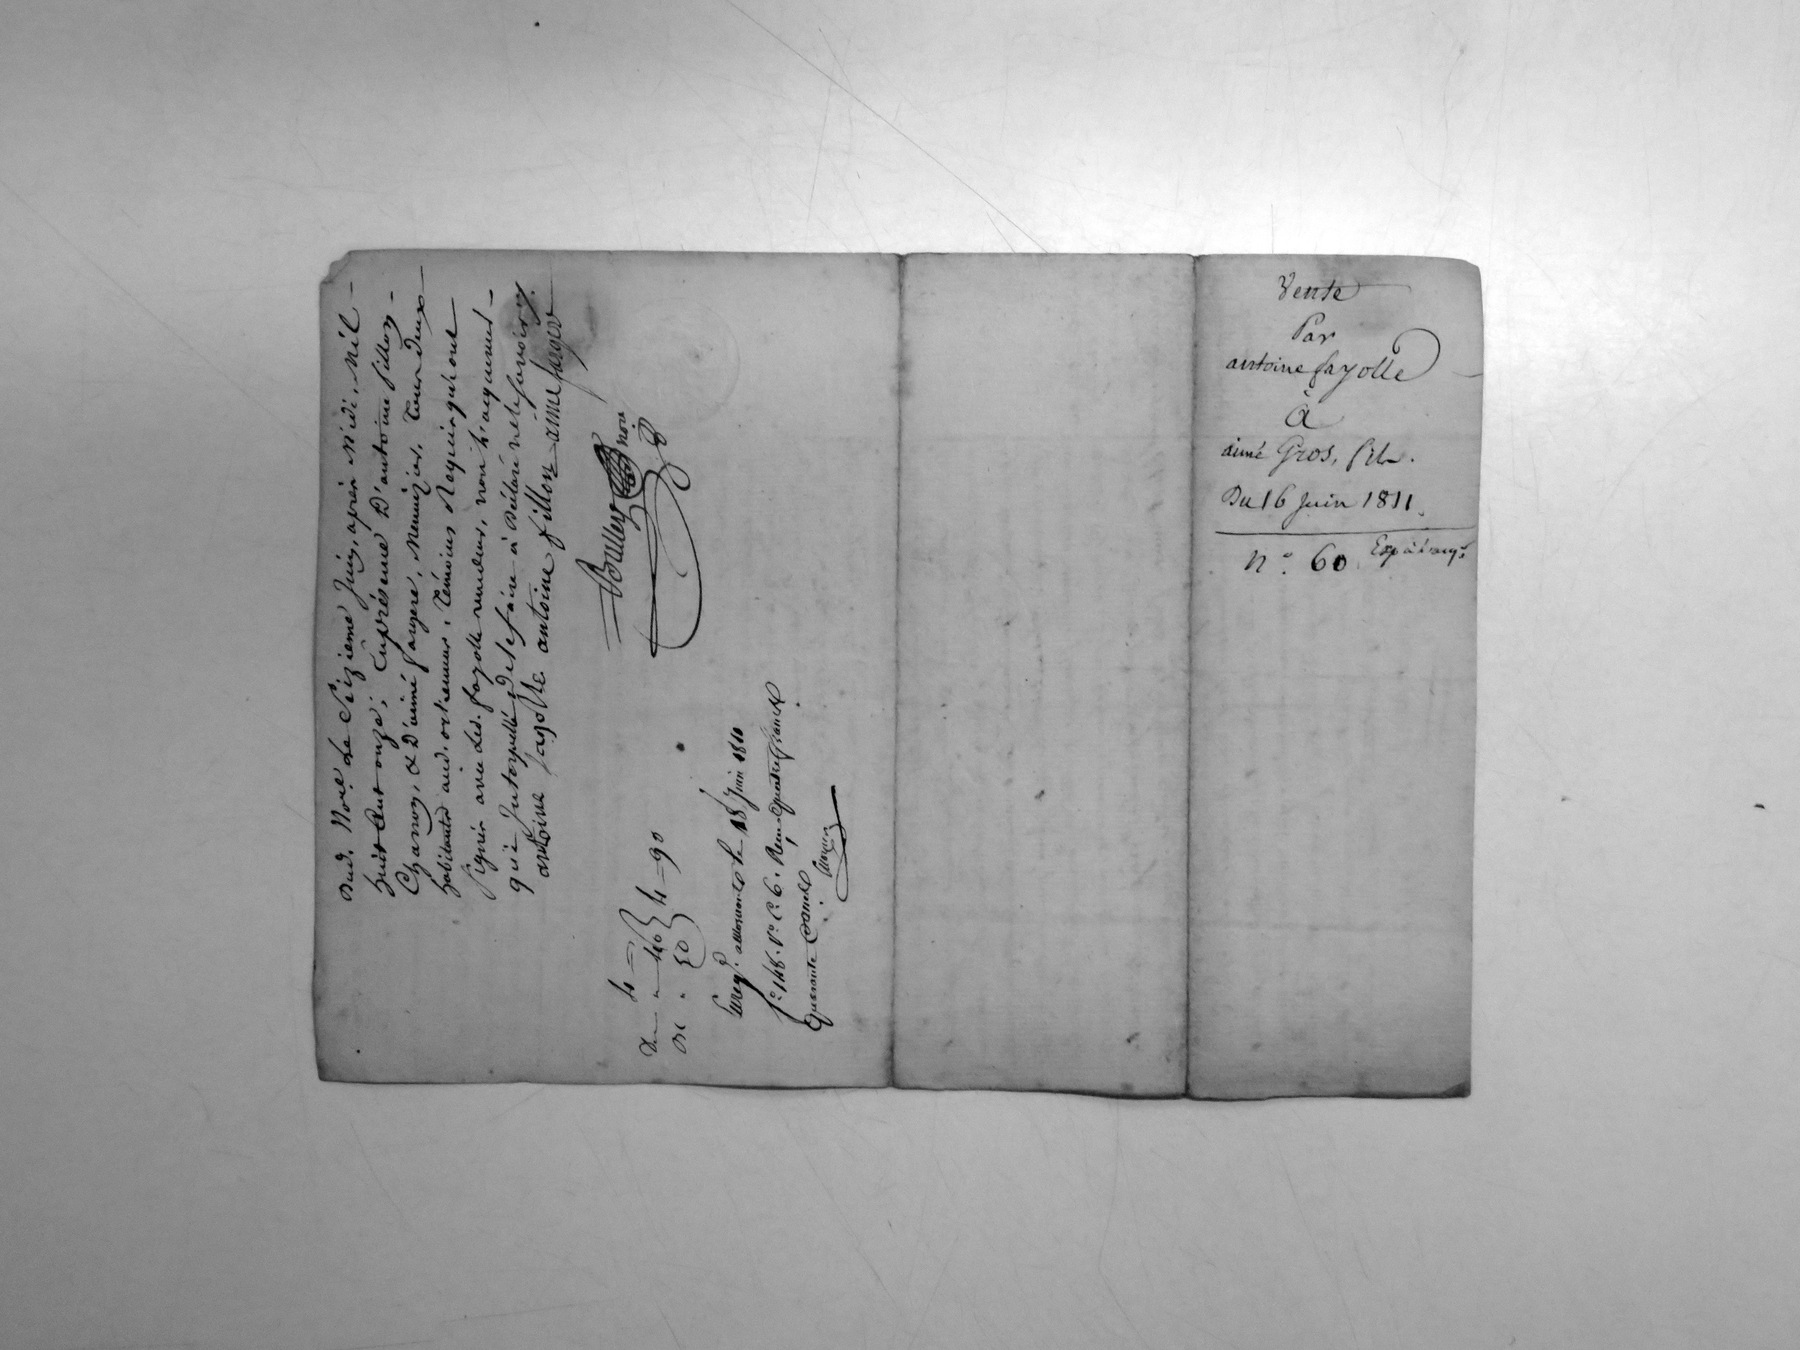 Vente
Par
antoine fayolle
à
aimé Gros, fils.
Du 16 Juin 1811.
n.° 60
Dud. No.re Le Seizieme Juin, après Midi, Mil
huit Cent onze; En présence D'antoine fillon
Charron, & D'aimé fargere, Menuizier, Tous deux
habitants aud. Témoins Requis qui ont
Signés avec led. fayolle vendeur, non L'acquereur
qui a Interpellé de le faire a Déclaré ne le savoir.
antoine fayolle antoine fillon aimé fargere
4 =
" 40
" 50
4 = 90
Enreg.
le 18 Juin 1811
f.° 148. V.° C. 6. Reçu quatre francs
quarante